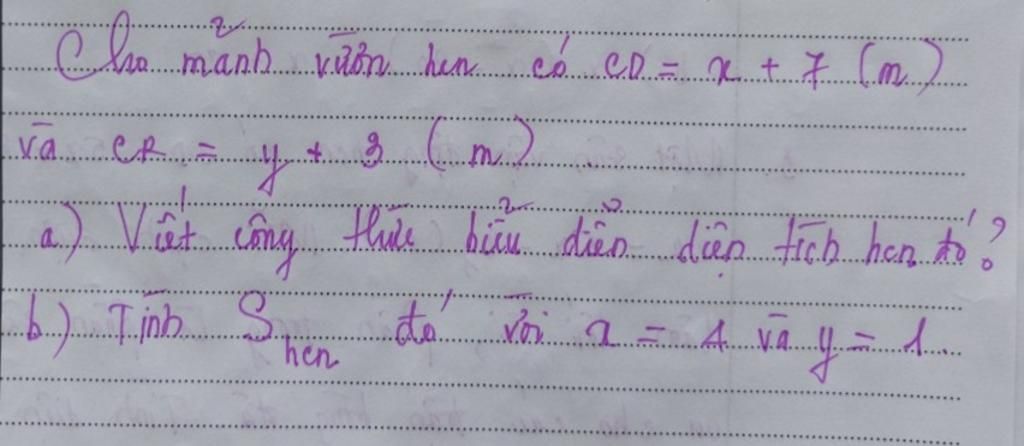 Cho mảnh vườn hcn có CD = x + 7 (m)
và CR = y + 3 (m)
a) Viết công thức biểu diễn diện tích hcn đó?
b) Tính S hcn đó với x = 4 và y = 1.